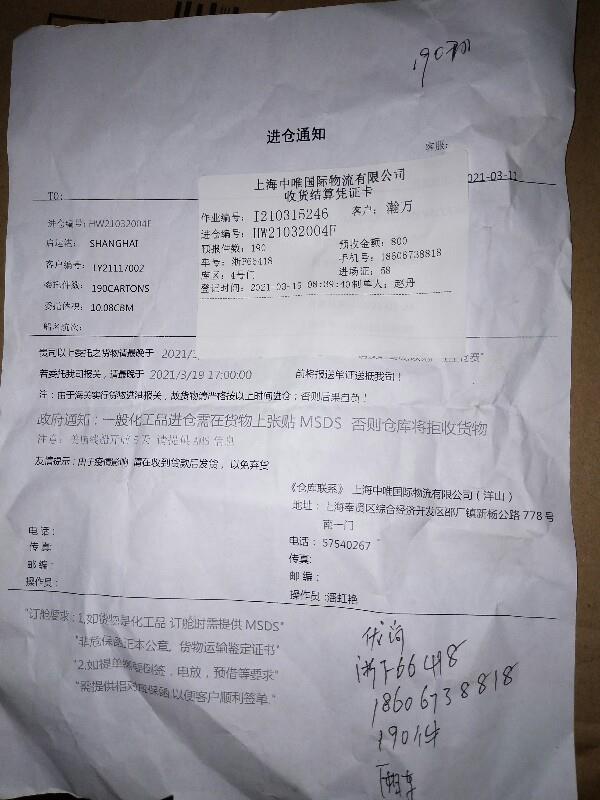 进仓通知
客服:
TO:
2021-03-11
上海中唯国际物流有限公司
收货结算凭证卡
作业编号: I210315246 客户: 瀚万
进仓编号: HW21032004F
预报件数: 190 预收金额: 800
车号: 浙F66418 手机号: 18606738818
库区: 4号门 进场证: 58
登记时间: 2021-03-15 08:39:40 制单人: 赵丹
进仓编号: HW21032004F
启运港: SHANGHAI
客户编号: TY21117002
委托件数: 190CARTONS
委托体积: 10.08CBM
船名航次:
贵司以上委托之货物请最晚于 2021/3
若委托我司报关，请最晚于 2021/3/19 17:00:00 前将报送单证送抵我司！
注：由于海关实行货物进港报关，故货物请严格按以上时间进仓；否则后果自负！
政府通知：一般化工品进仓需在货物上张贴 MSDS 否则仓库将拒收货物
注意：美
请提供 AMS 信息
友情提示：由于疫情影响 请在收到货款后发货，以免弃货
《仓库联系》上海中唯国际物流有限公司（洋山）
地址：上海奉贤区综合经济开发区邵厂镇新杨公路 778 号
南一门
电话： 57540267
传真:
邮编：
操作员 :潘虹艳
电话：
传真:
邮编：
操作员：
"订舱要求：1,如货物是化工品 订舱时需提供 MSDS"
"非危保函正本公章，货物运输鉴定证书"
"2.如提单需要倒签，电放，预借等要求"
"需提供相对应保函 以便客户顺利签单 "
浙F66418
18606738818
190件